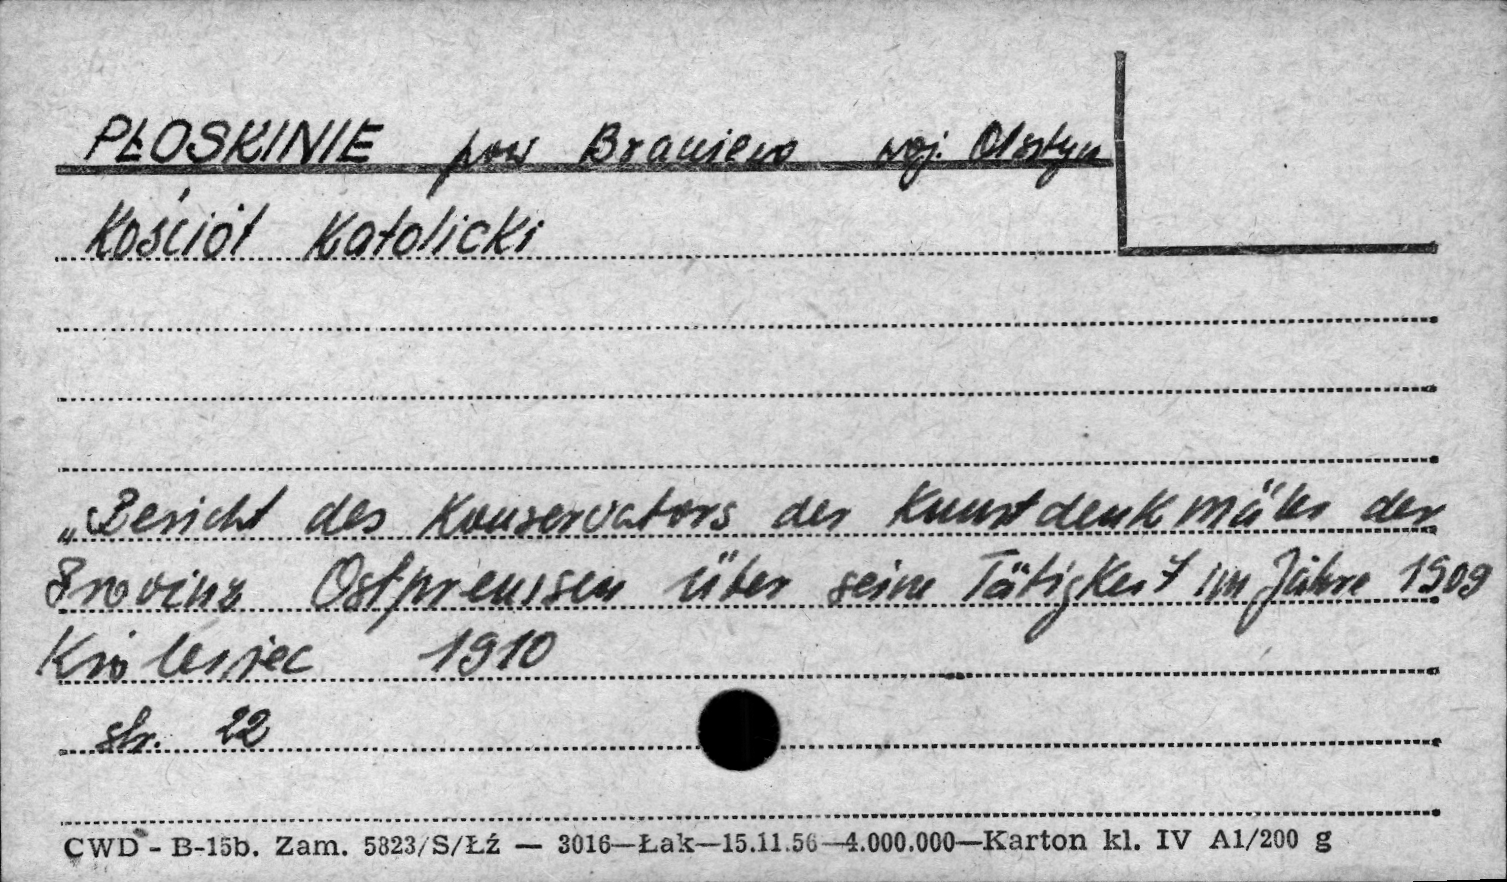 PŁOSKINIE pow Braniewo woj. Olsztyn
Kościół Katolicki
„Bericht des Konservators der Kunstdenkmäler der
Provinz Ostpreussen über seine Tätigkeit im Jahre 1909
Królewiec 1910
str. 22
CWD - B-15b. Zam. 5823/S/Łź — 3016—Łak—15.11.56—4.000.000—Karton kl. IV A1/200 g